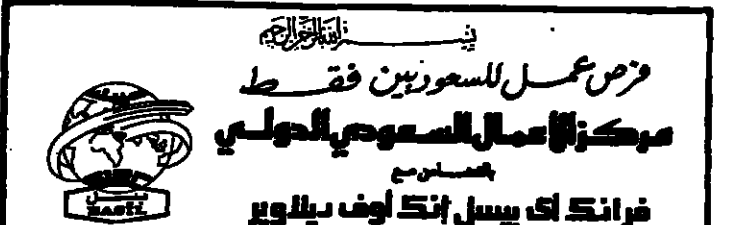 بسم الله الرحمن الرحيم
فرص عمل للسعوديين فقط
مركز الأعمال السعودي الدولي
بالتضامن مع
فرانك أى بيسل إنك أوف ديلاوير